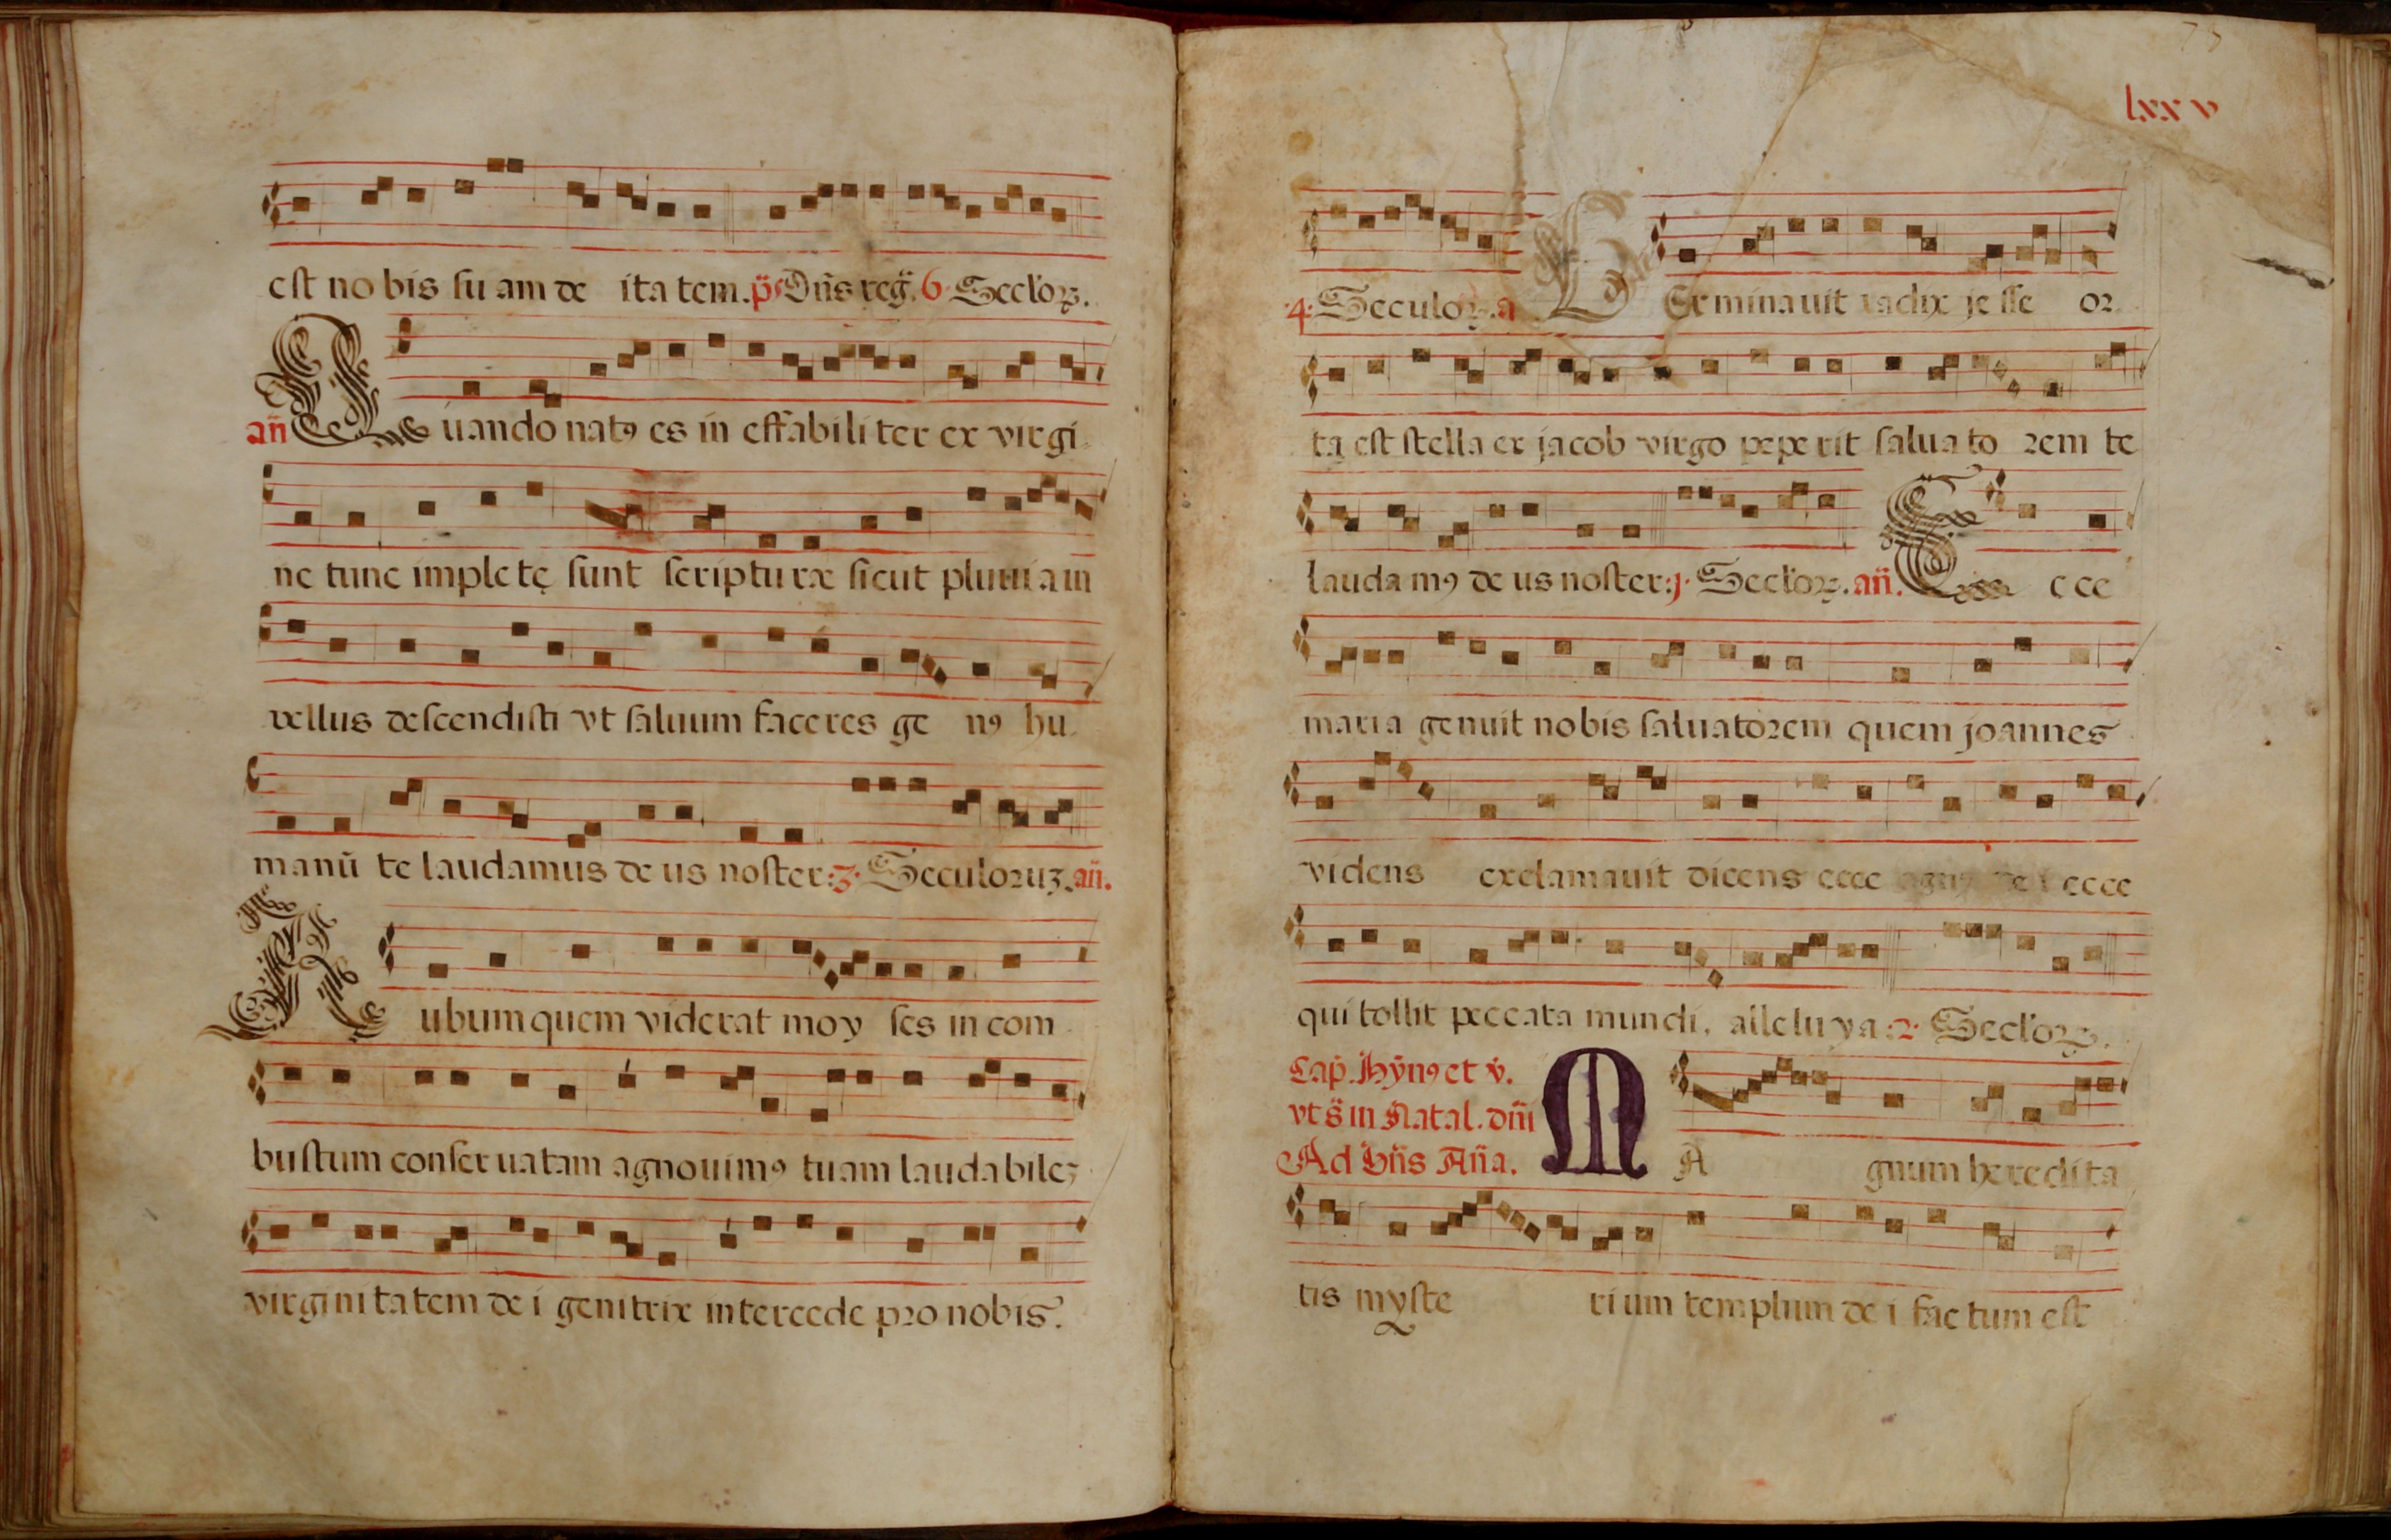 est no bis su am de ita tem. p̄s Dn̄s reḡ. 6. Secloꝝ.
an̄ Quando natꝰ es in effabili ter ex virgi
ne tunc imple tę sunt scriptu ræ sicut pluuia in
vellus descendisti vt saluum faceres ge nꝰ hu
manū te laudamus de us noster: 3. Seculoruꝫ. an̄.
Rubum quem viderat moy ses in com
bustum conseruatam agnouimꝰ tuam laudabileꝫ
virginitatem de i genitrix intercede pro nobis.
lxxv
4. Seculoꝝ. a Germinauit radix je sse or
ta est stella ex jacob virgo pepe rit salua to rem te
lauda mꝰ de us noster: j. Secloꝝ. an̄. Ecce
maria genuit nobis saluatorem quem joannes
videns exclamauit dicens ecce agnꝰ de i ecce
qui tollit peccata mundi, alleluya: 2. Secloꝝ.
Cap̄. Hȳnꝰ et v̄.
vt s̄ in Natal. dn̄i
Ad Bn̄s An̄a.
MAgnum heredita
tis myste rium templum de i fac tum est